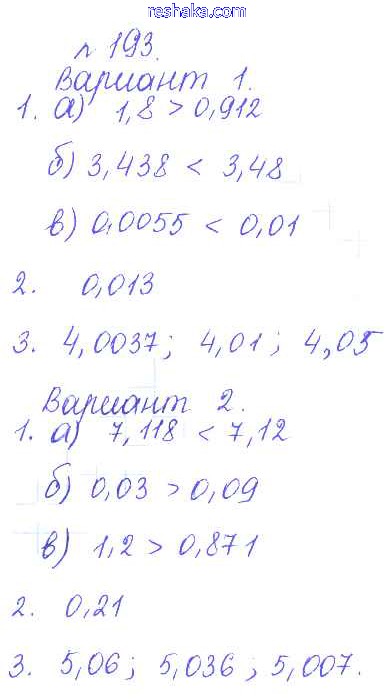 reshaka.com
n 193.
Вариант 1.
1. а) 1,8 > 0,912
б) 3,438 < 3,48
в) 0,0055 < 0,01
2. 0,013
3. 4,0037; 4,01; 4,05
Вариант 2.
1. а) 7,118 < 7,12
б) 0,03 > 0,09
в) 1,2 > 0,871
2. 0,21
3. 5,06; 5,036; 5,007.